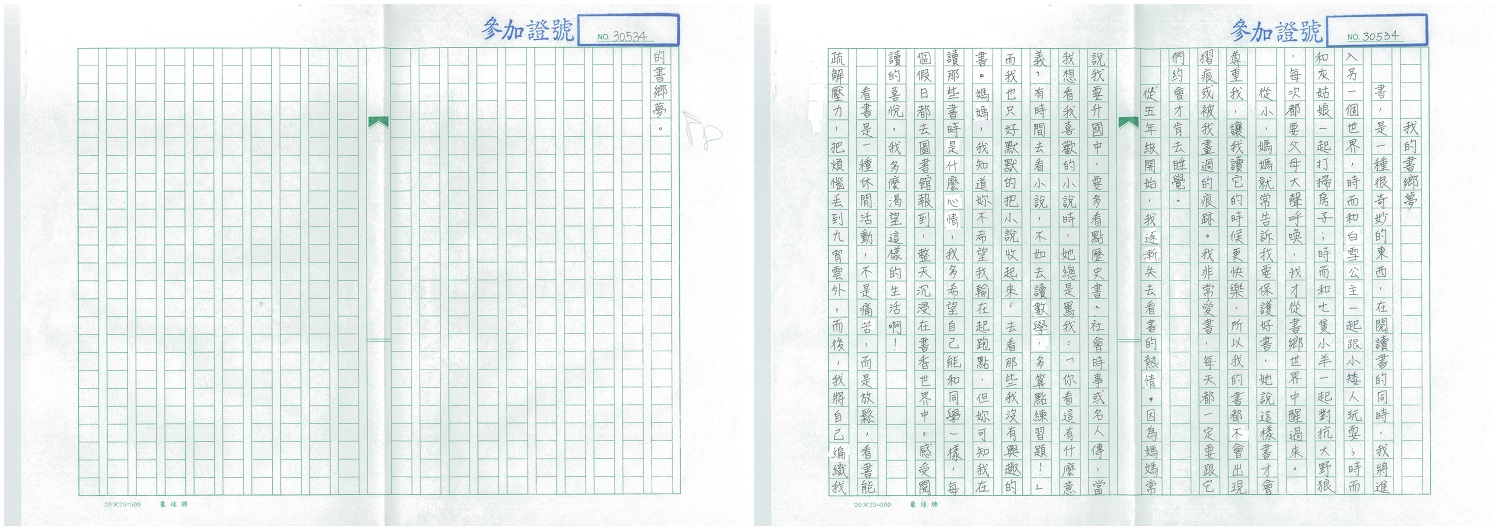 參加證號 NO. 30534
我的書鄉夢
書，是一種很奇妙的東西，在閱讀書的同時，我將進
入另一個世界，時而和白雪公主一起跟小矮人玩耍；時而
和灰姑娘一起打掃房子；時而和七隻小羊一起對抗大野狼
，每次都要父母大聲呼喚，我才從書鄉世界中醒過來。
從小，媽媽就常告訴我要保護好書，她說這樣書才會
尊重我，讓我讀它的時候更快樂，所以我的書都不會出現
摺痕或被我畫過的痕跡。我非常愛書，每天都一定要跟它
們約會才肯去睡覺。
從五年級開始，我逐漸失去看書的熱情。因為媽媽常
說我要升國中，要多看點歷史書。社會時事或名人傳，當
我想看我喜歡的小說時，她總是罵我：「你看這有什麼意
義，有時間去看小說，不如去讀數學，多算點練習題！」
而我也只好默默的把小說收起來，去看那些我沒有興趣的
書。媽媽，我知道妳不希望我輸在起跑點，但妳可知我在
讀那些書時是什麼心情，我多希望自己能和同學一樣，每
個假日都去圖書館報到，整天沉浸在書香世界中。感受閱
讀的喜悅，我多麼渴望這樣的生活啊！
看書是一種休閒活動，不是痛苦，而是放鬆，看書能
疏解壓力，把煩惱丟到九霄雲外，而後，我將自己編織我
20×25=500 象球牌
參加證號 NO. 30534
的書鄉夢。
20×25=500 象球牌